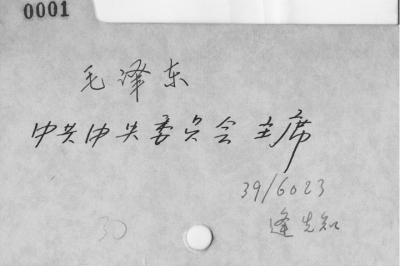 0001
毛泽东
中共中央委员会主席
39/6023
30
逢先知